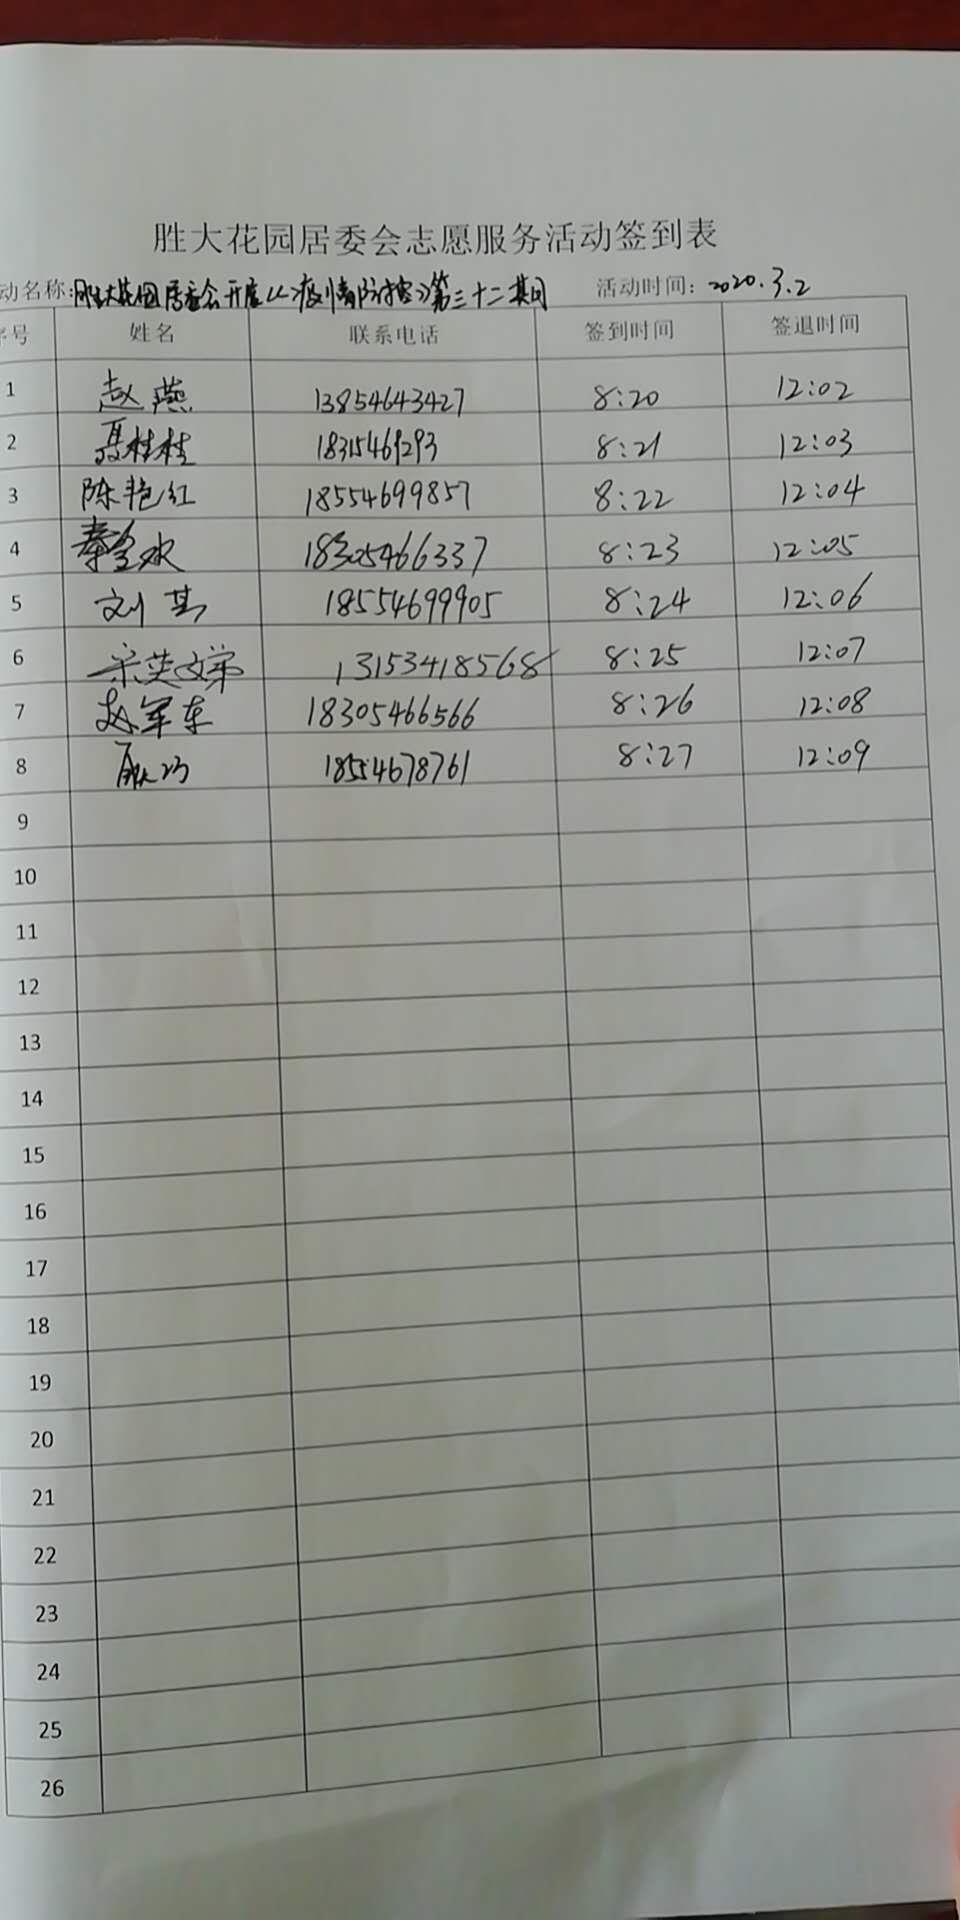 胜大花园居委会志愿服务活动签到表
动名称：胜大花园居委会开展《疫情防控》第三十二期 活动时间：2020.3.2
序号 姓名 联系电话 签到时间 签退时间
1 赵燕 13854643427 8:20 12:02
2 聂桂桂 18315469293 8:21 12:03
3 陈艳红 18554699857 8:22 12:04
4 秦金欢 18305466337 8:23 12:05
5 刘其 18554699905 8:24 12:06
6 13153418568 8:25 12:07
7 赵军东 18305466566 8:26 12:08
8 18554678761 8:27 12:09
9
10
11
12
13
14
15
16
17
18
19
20
21
22
23
24
25
26